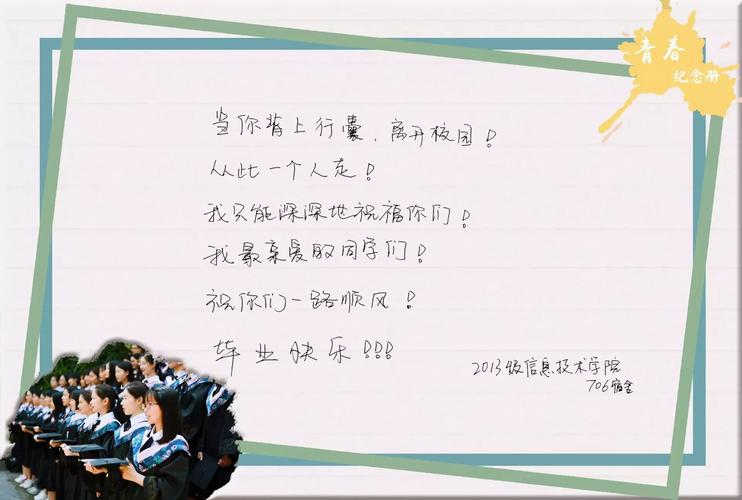 青春
纪念册
当你背上行囊,离开校园!
从此一个人走!
我只能深深地祝福你们!
我最亲爱的同学们!
祝你们一路顺风!
毕业快乐!!!
2013级信息技术学院
706宿舍